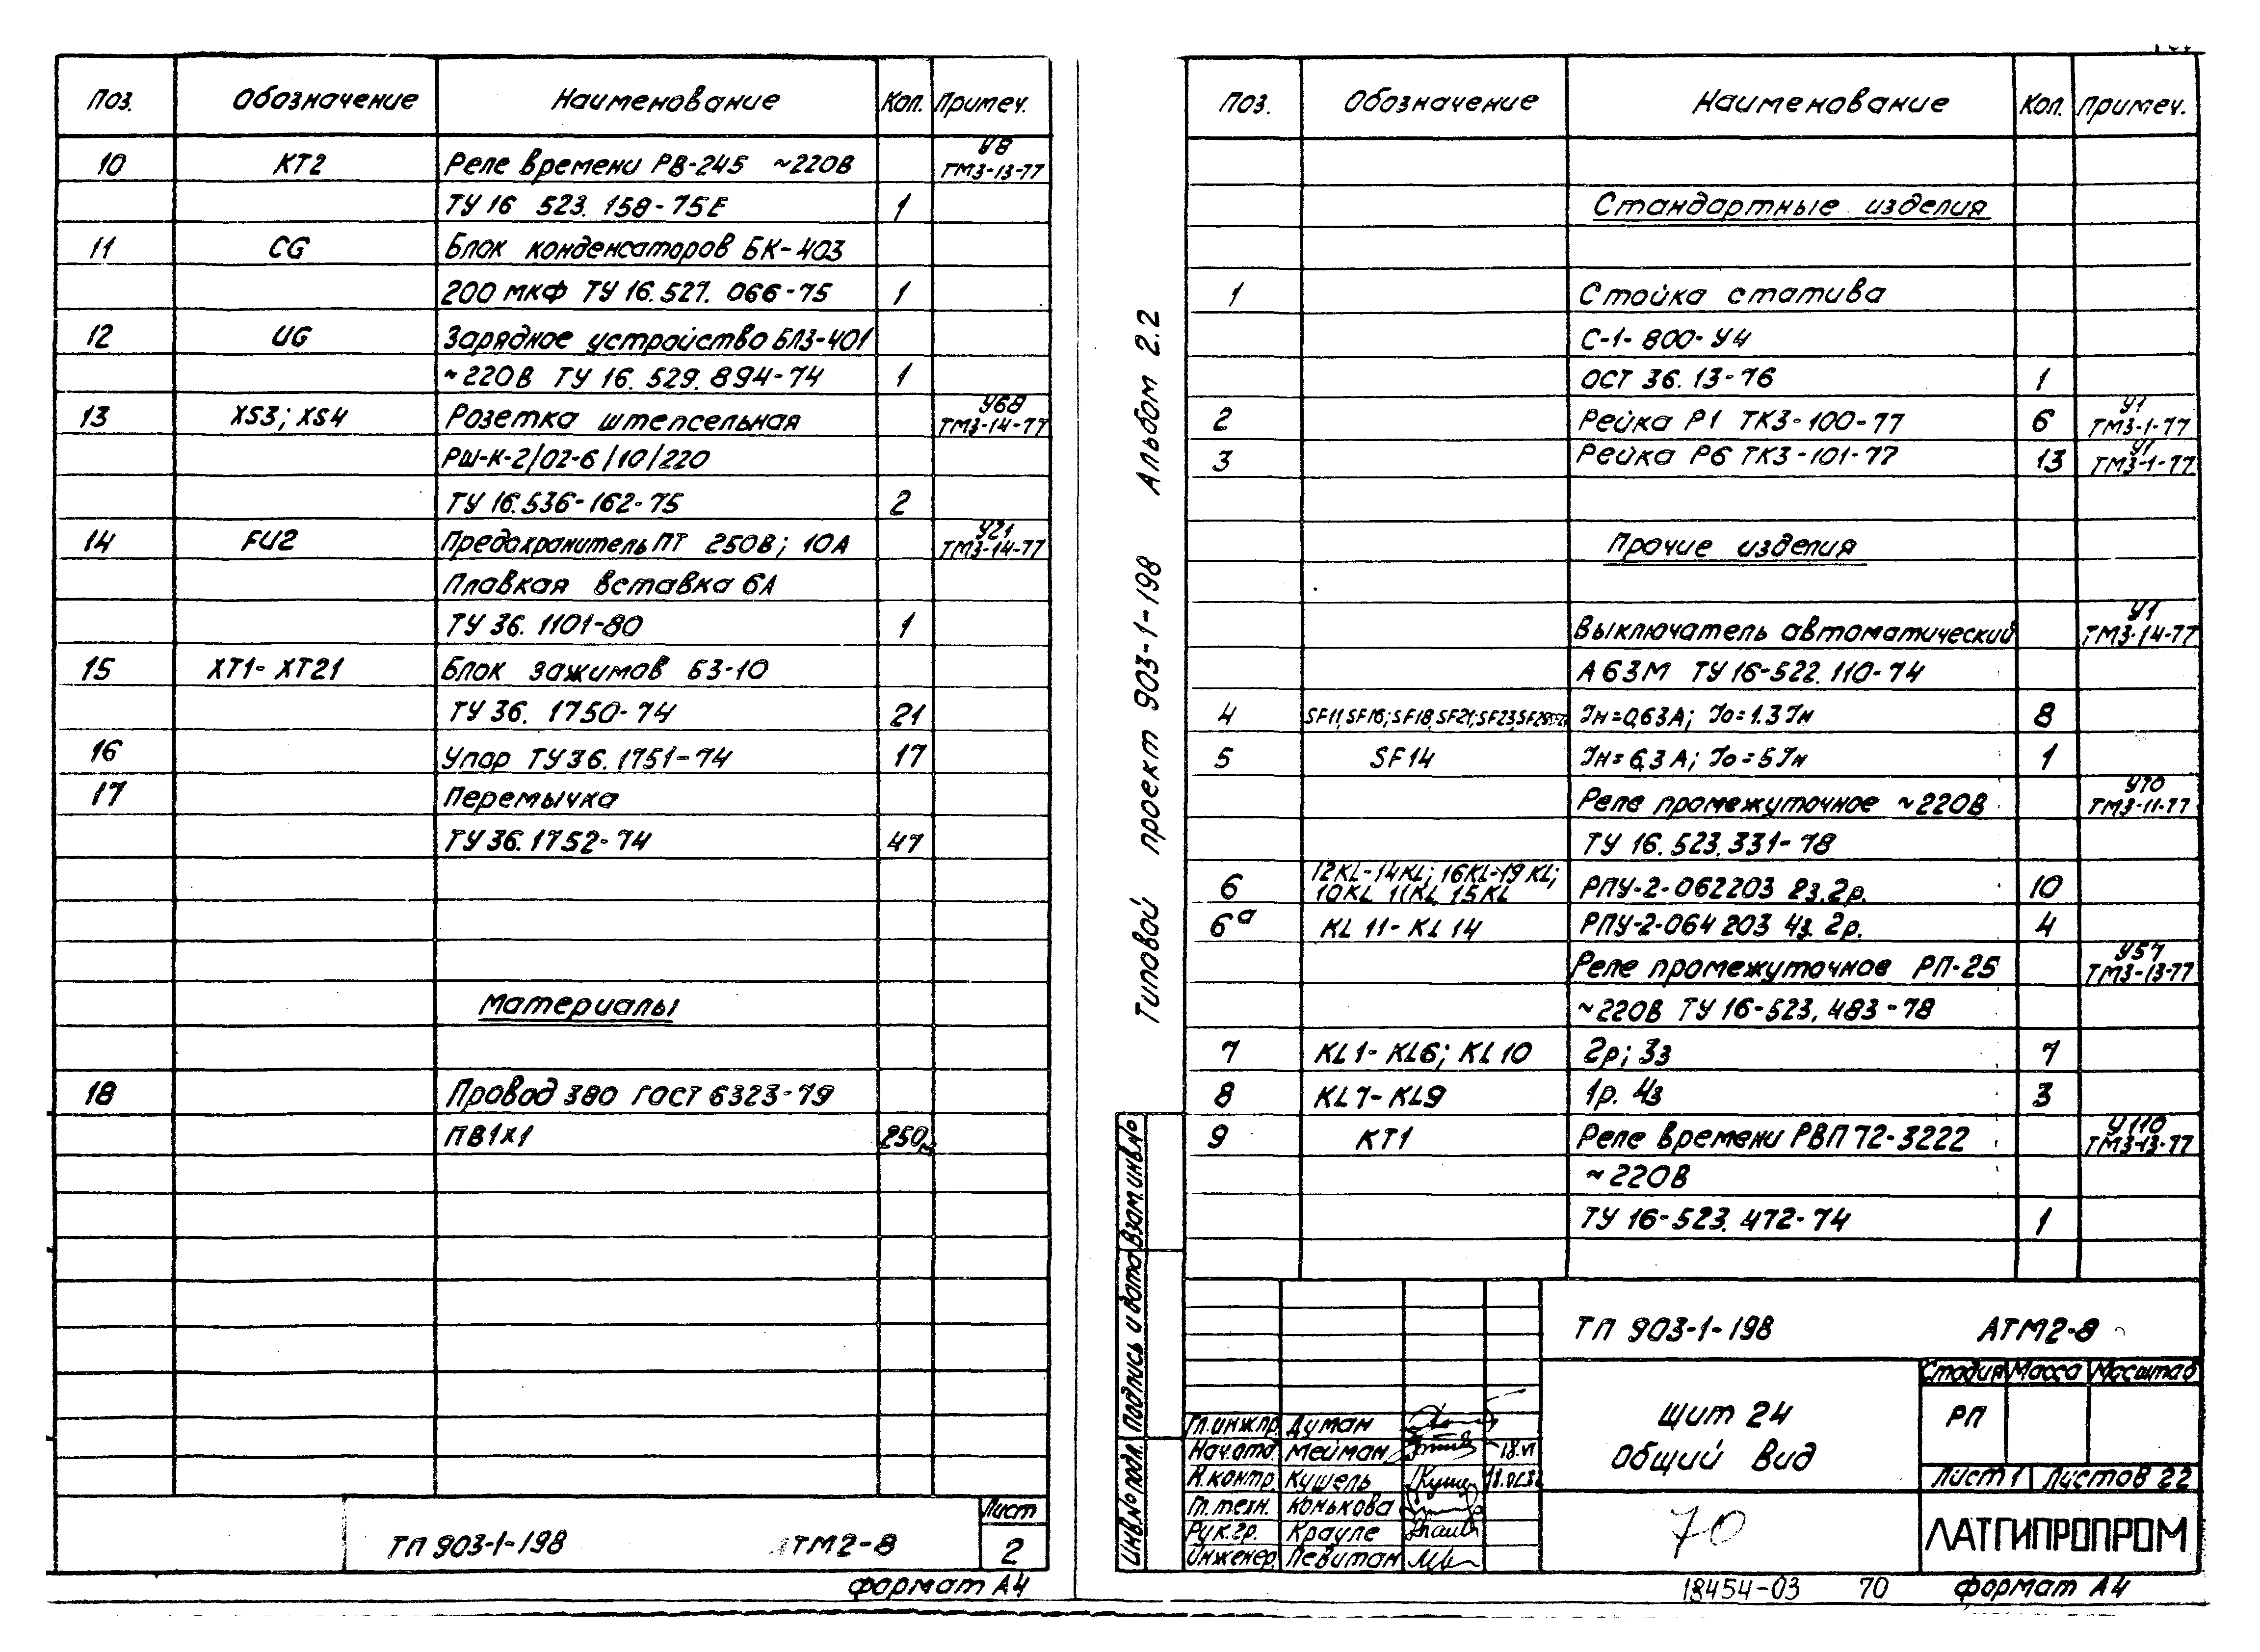 Поз. Обозначение Наименование Кол. Примеч.
10 КТ2 Реле времени РВ-245 ~220В У8 ТМ3-13-77
ТУ 16 523. 158-75Е 1
11 CG Блок конденсаторов БК-403
200 мкФ ТУ 16.527. 066-75 1
12 UG Зарядное устройство БПЗ-401
~220В ТУ 16. 529. 894-74 1
13 XS3; XS4 Розетка штепсельная У68 ТМ3-14-77
РШ-К-2/02-6/10/220
ТУ 16.536-162-75 2
14 FU2 Предохранитель ПТ 250В; 10А У21 ТМ3-14-77
Плавкая вставка 6А
ТУ 36. 1101-80 1
15 ХТ1- ХТ21 Блок зажимов БЗ-10
ТУ 36. 1750-74 21
16 Упор ТУ 36. 1751-74 17
17 Перемычка
ТУ 36. 1752-74 47
Материалы
18 Провод 380 ГОСТ 6323-79
ПВ 1х1 250м
ТП 903-1-198 ТМ2-8 Лист 2
формат А4
Типовой проект 903-1-198 Альбом 2.2
Поз. Обозначение Наименование Кол. Примеч.
Стандартные изделия
1 Стойка статива
С-1-800-У4
ОСТ 36. 13-76 1
2 Рейка Р1 ТК3-100-77 6 У1 ТМ3-1-77
3 Рейка Р6 ТК3-101-77 13 У1 ТМ3-1-77
Прочие изделия
Выключатель автоматический У1 ТМ3-14-77
А63М ТУ 16-522. 110-74
4 SF11, SF16; SF18, SF21; SF23, SF25 Iн=0,63А; Iо=1.3 Iн 8
5 SF14 Iн=6,3А; Iо=5Iн 1
Реле промежуточное ~220В У70 ТМ3-11-77
ТУ 16.523.331-78
12KL-14KL; 16KL-19KL;
6 10KL 11KL 15KL РПУ-2-062203 2з.2р. 10
6а KL 11- KL 14 РПУ-2-064 203 4з. 2р. 4
Реле промежуточное РП-25 У57 ТМ3-13-77
~220В ТУ 16-523. 483-78
7 KL1- KL6; KL10 2р; 3з 7
8 KL7- KL9 1р. 4з 3
9 КТ1 Реле времени РВП 72-3222 У110 ТМ3-13-77
~220В
ТУ 16-523. 472-74 1
Инв.№подл. Подпись и дата Взам.инв.№
ТП 903-1-198 АТМ2-8
Стадия Масса Масштаб
Щит 24
Общий вид
РП
Лист 1 Листов 22
ЛАТГИПРОПРОМ
Гл.инж.пр. Думан
Нач.отд. Мейман 18.VI
Н.контр. Кушель
Гл.техн. Конькова
Рук.гр. Крауле
Инженер. Левитан
70
18454-03 70 формат А4